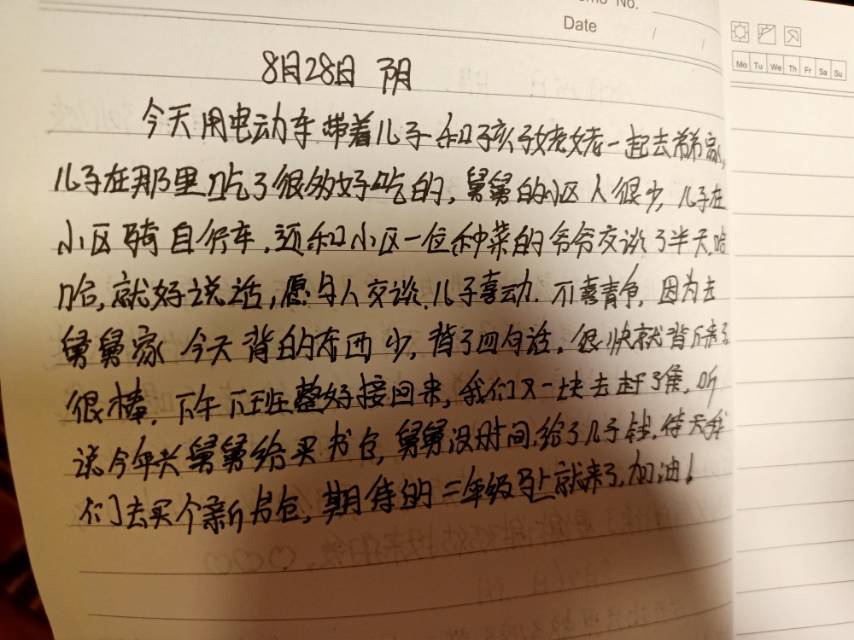 Memo No.
Date / /
Mo Tu We Th Fr Sa Su
8月28日 阴
今天用电动车带着儿子和孩子姥姥一起去弟弟家,
儿子在那里吃了很多好吃的,舅舅的小区人很少,儿子在
小区骑自行车,还和小区一位种菜的爷爷交谈了半天,哈
哈,就好说话,愿与人交谈,儿子喜动.不喜静,因为去
舅舅家今天背的东西少,背了四句话,很快就背下来了
很棒,下午下班整好接回来,我们又一块去赶了集,听
说今年兴舅舅给买书包,舅舅没时间,给了儿子钱,待天我
们去买个新书包,期待的二年级马上就来了,加油!